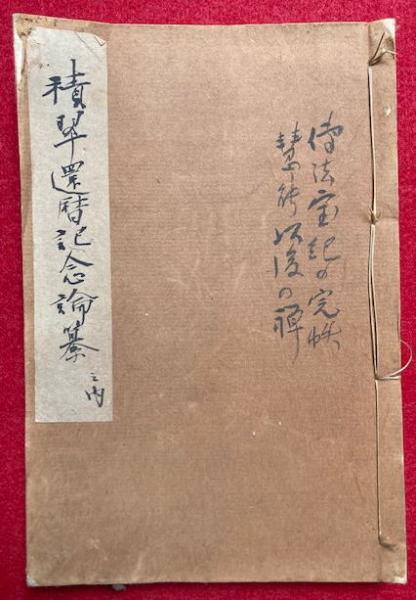 傳法宝紀の完帙
慧能以後の禪
積翠還暦記念論纂
之内